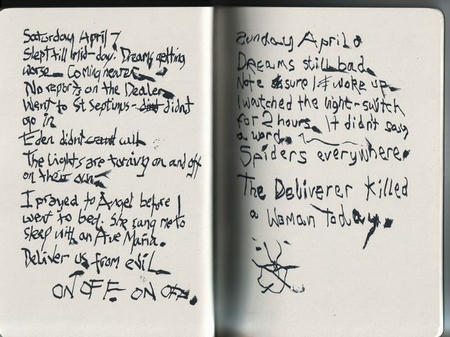 Saturday April 7
Slept till mid-day. Dreams getting
worse. Coming nearer.
No reports on the Dealer
Went to St Septimus - didnt
go in
Eden didnt call
The Lights are turning on and off
on their own.
I prayed to Angel before I
went to bed. She sang me to
sleep with an Ave Maria.
Deliver us from evil
ON OFF ON OFF
Sunday April 8
Dreams still bad.
Not sure I woke up
I watched the light-switch
for 2 hours. It didnt say
a word.
Spiders everywhere.
The Deliverer Killed
a Woman Today.